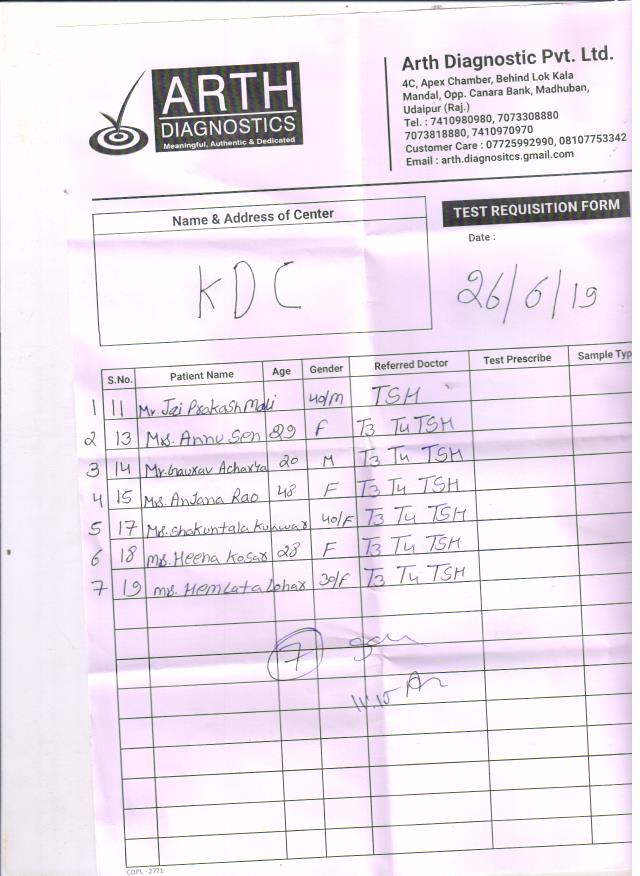 ARTH
DIAGNOSTICS
Meaningful, Authentic & Dedicated
Arth Diagnostic Pvt. Ltd.
4C, Apex Chamber, Behind Lok Kala
Mandal, Opp. Canara Bank, Madhuban,
Udaipur (Raj.)
Tel. : 7410980980, 7073308880
7073818880, 7410970970
Customer Care : 07725992990, 08107753342
Email : arth.diagnositcs.gmail.com
Name & Address of Center
KDC
TEST REQUISITION FORM
Date :
26/6/19
S.No. Patient Name Age Gender Referred Doctor Test Prescribe Sample Typ
1 11 Mr. Jai Prakash Mali 40/M TSH
2 13 Mrs. Annu Sen 29 F T3 T4 TSH
3 14 Mr. Gaurav Acharya 20 M T3 T4 TSH
4 15 Mrs. Anjana Rao 48 F T3 T4 TSH
5 17 Mrs. Shakuntala Kunwar 40/F T3 T4 TSH
6 18 Mrs. Heena Kosar 28 F T3 T4 TSH
7 19 Mrs. Hemlata Lohar 30/F T3 T4 TSH
7
COPL - 2771